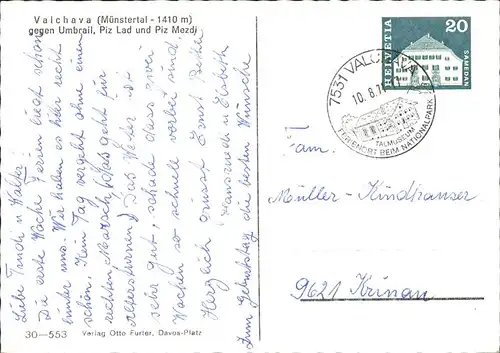 Valchava (Münstertal - 1410 m)
gegen Umbrail, Piz Lad und Piz Mezdi
Liebe Trudi u Walter!
Die erste Woche Ferien liegt schon
hinter uns. Wir haben es hier recht
schön. Kein Tag vergeht ohne einen
rechten Marsch (das geht für
Alterspuren) Das Wetter ist
sehr gut, schade dass zwei
Wochen so schnell vorbei sind
Herzlich grüsst Ernst Bethli
Hansruedi u Elisabeth
Zum Geburtstag die besten Wünsche
30-553 Verlag Otto Furter, Davos-Platz
HELVETIA
20
SAMEDAN
7531 VALCHAVA
10.8.7
TALMUSEUM
FERIENORT BEIM NATIONALPARK
Fam.
Müller-Kindhauser
9621 Krinau